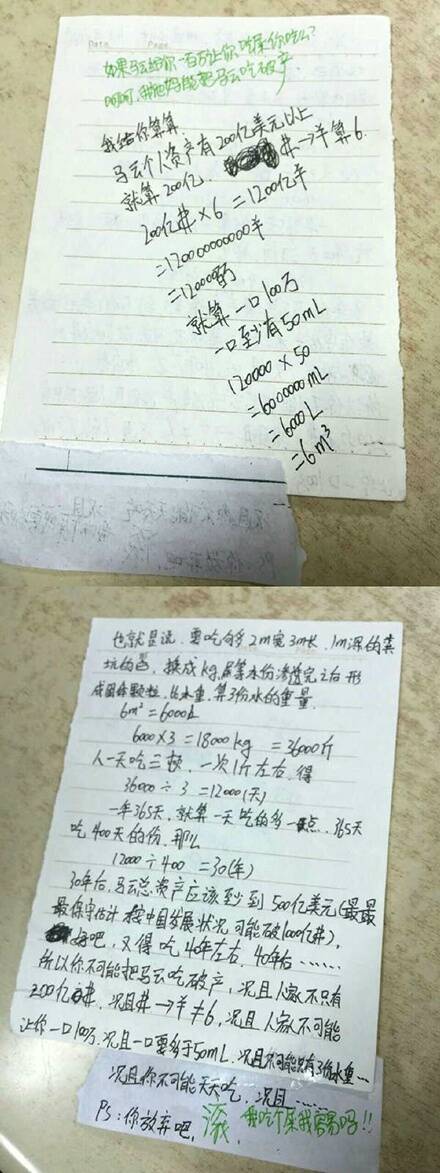 Date Page
如果马云给你一百万让你吃屎你吃么?
呵呵,我他妈能把马云吃破产
我给你算算,
马云个人资产有200亿美元以上
就算200亿. 井→羊算6.
200亿井×6 =1200亿羊
=120000000000羊
=120000百万
就算一口100万
一口至少有50mL
120000×50
=6000000mL
=6000L
=6m³
也就是说.要吃够多2m宽3m长.1m深的粪
坑的量.换成kg,屎等水份渗透完之后形
成固体颗粒,比水重.算3份水的重量.
6m³=6000L
6000×3=18000kg =36000斤
人一天吃三顿.一次1斤左右.得
36000÷3=12000(天)
一年365天.就算一天吃的多一点.365天
吃400天的份.那么
12000÷400 =30(年)
30年后,马云总资产应该至少到500亿美元(最最
最保守估计 按中国发展状况可能破1000亿井).
好吧,又得吃40年左右.40年后……
所以你不可能把马云吃破产,况且人家不只有
200亿井.况且井→羊≠6.况且人家不可能
让你一口100万.况且一口要多于50mL.况且不可能只有3份水重…
况且你不可能天天吃.况且……
PS:你放弃吧. 滚 我吃个屎我容易吗!!